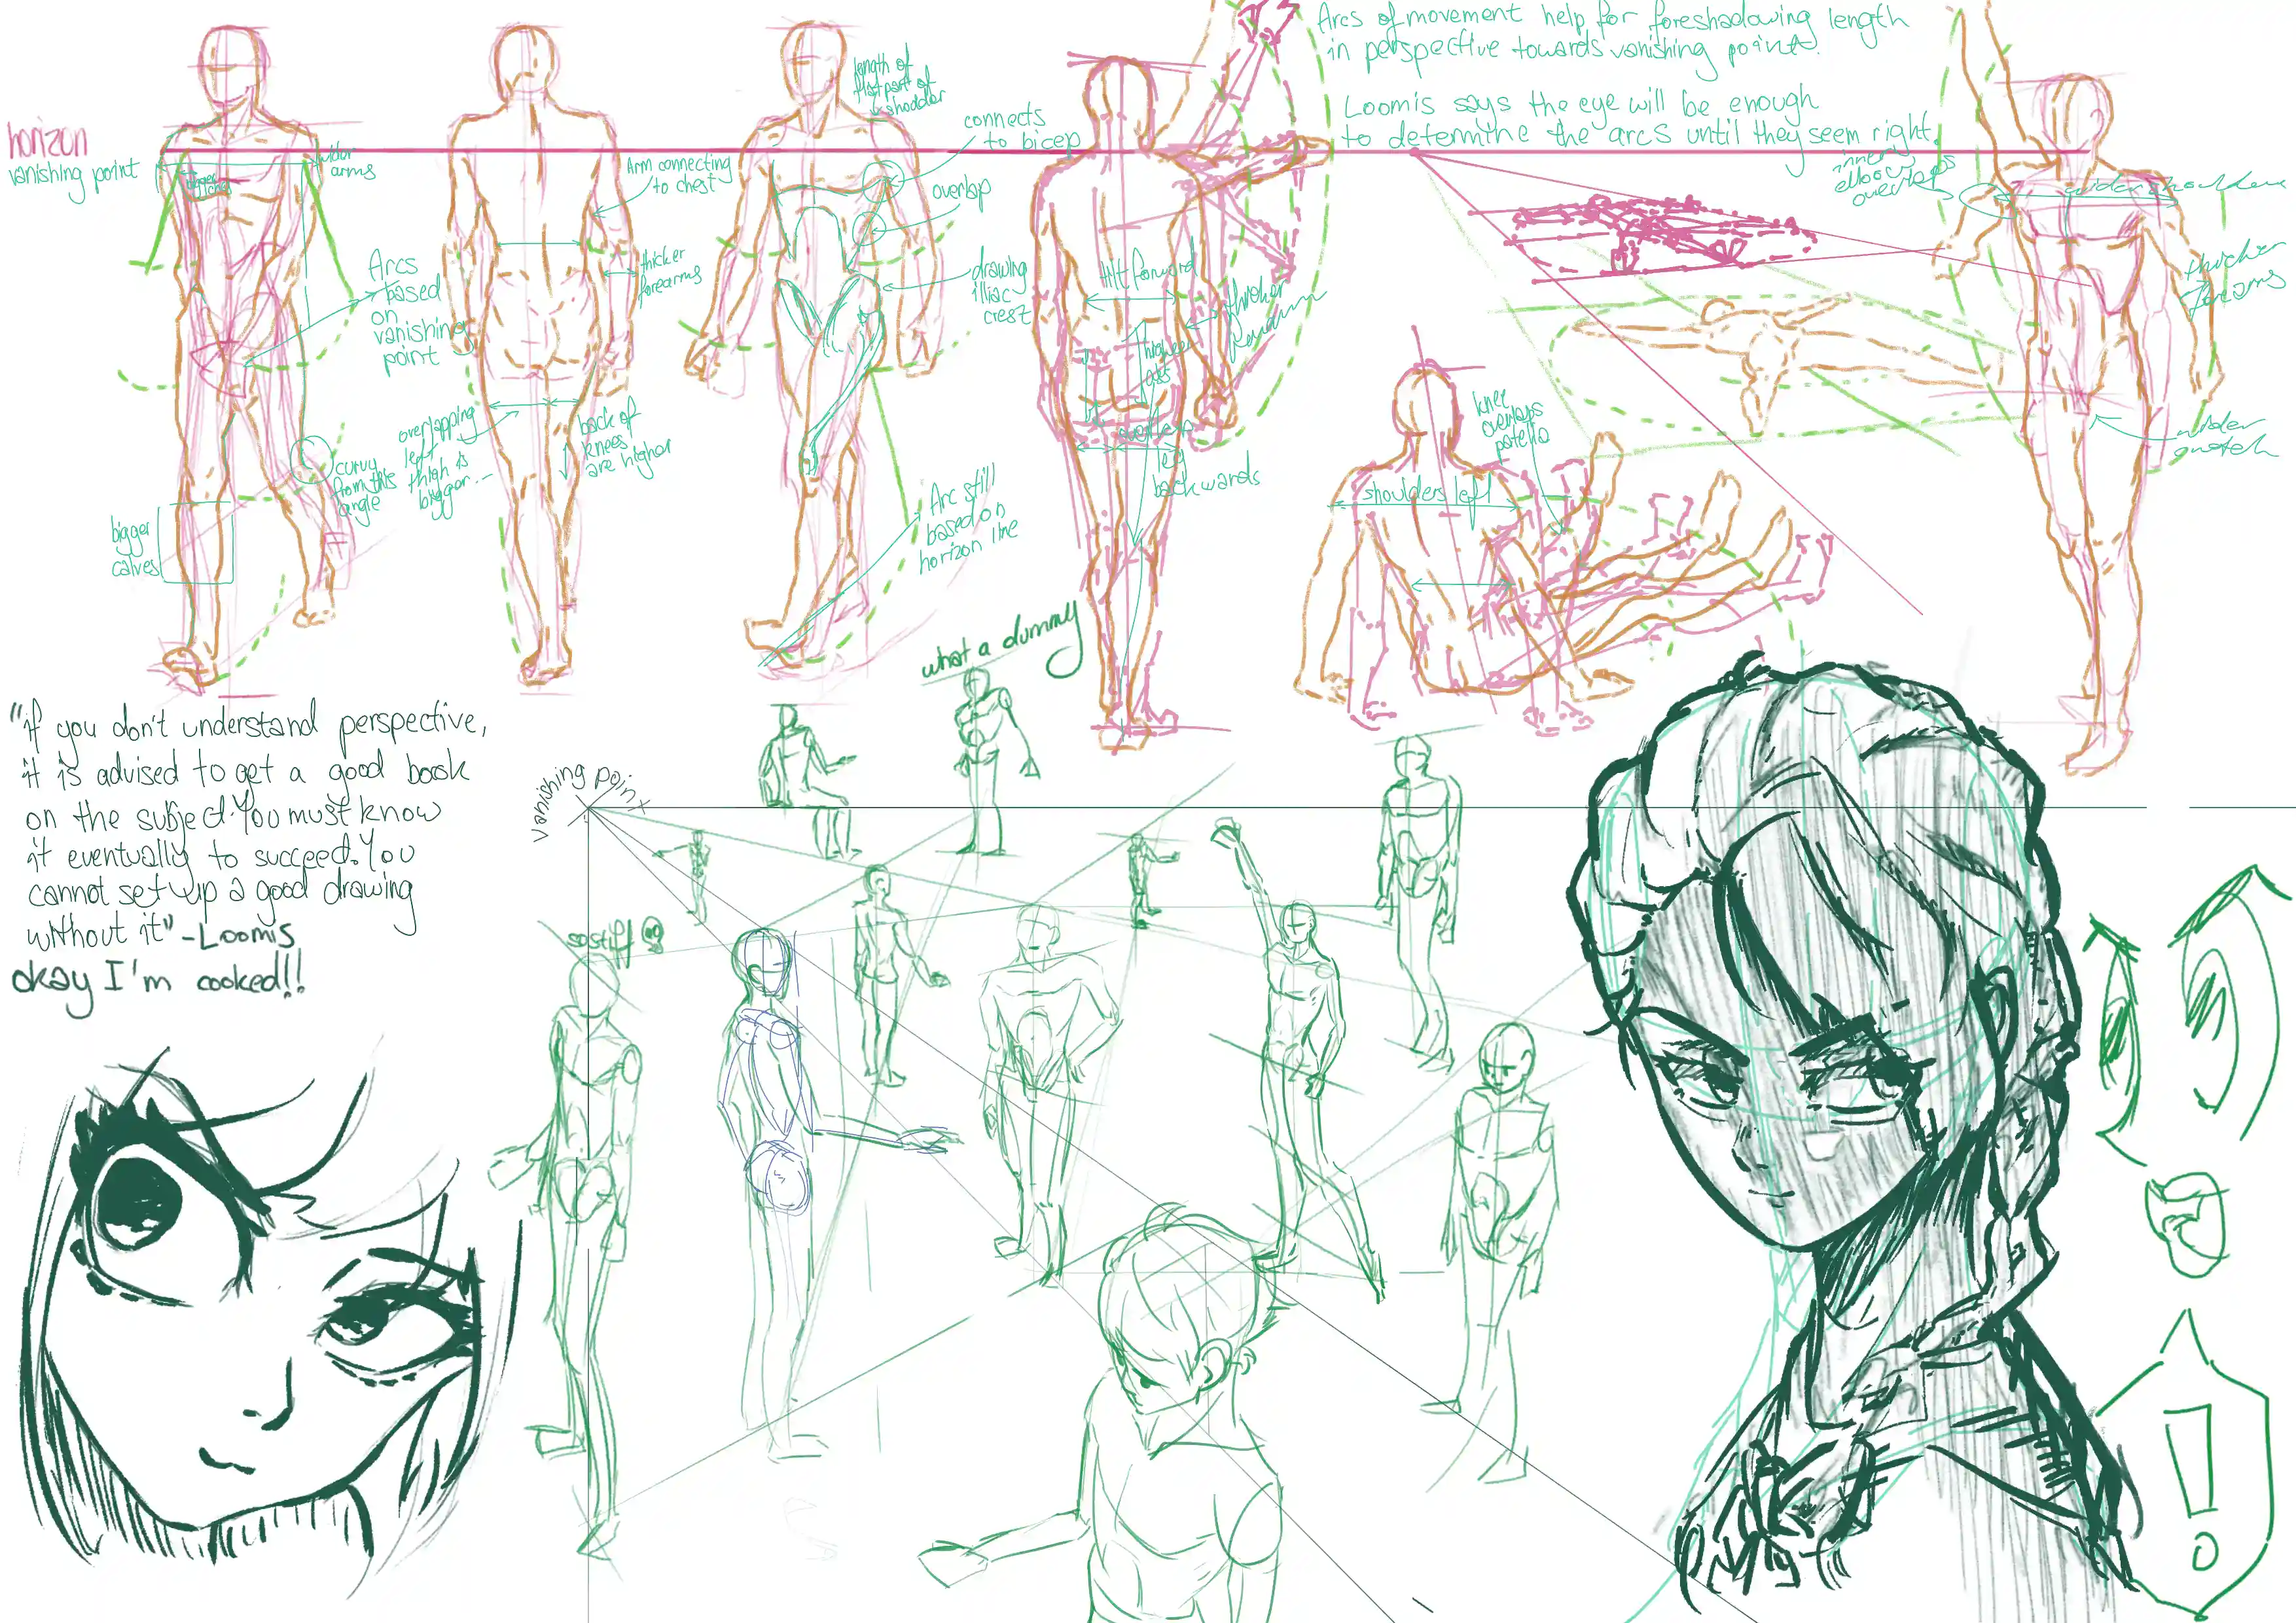 Arcs of movement help for foreshadowing length
in perspective towards vanishing point.
Loomis says the eye will be enough
to determine the arcs until they seem right.
horizon
vanishing point
wider
arms
bigger
Arcs
based
on
vanishing
point
curvy
from this
angle
bigger
calves
Arm connecting
to chest
thicker
forearms
overlapping
left
thigh is
bigger...
back of
knees
are higher
length of
flat part of
shoulder
connects
to bicep
overlap
drawing
illiac
crest
Arc still
based on
horizon line
tilt forward
thicker
forearm
higher
ass
overlap
leg
backwards
knee
overlaps
patella
shoulders left
inner
elbow
overlaps
wider shoulders
thicker
forearms
wider
what a dummy
"if you don't understand perspective,
it is advised to get a good book
on the subject. You must know
it eventually to succeed. You
cannot set up a good drawing
without it" -Loomis
okay I'm cooked!!
vanishing point
so stiff
!